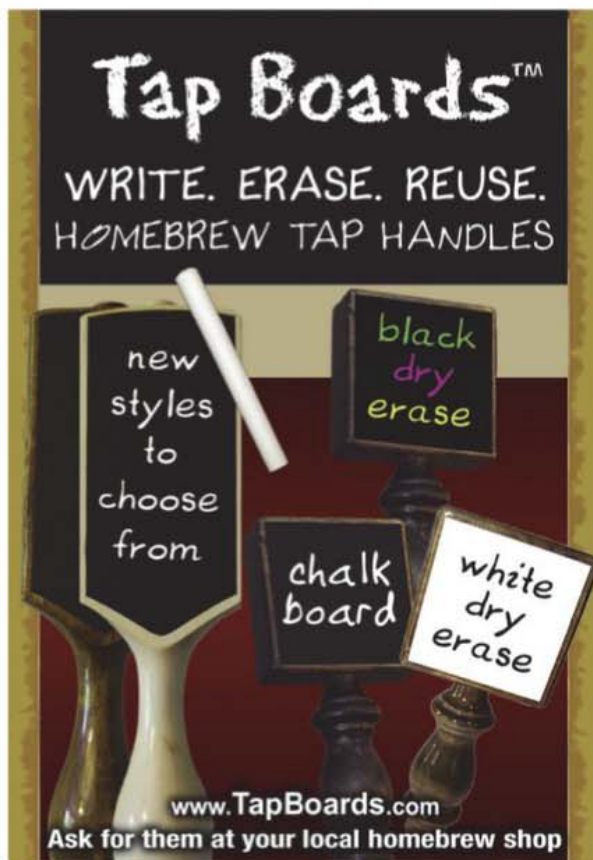 Tap Boards™
WRITE. ERASE. REUSE.
HOMEBREW TAP HANDLES
new
styles
to
choose
from
black
dry
erase
chalk
board
white
dry
erase
www.TapBoards.com
Ask for them at your local homebrew shop